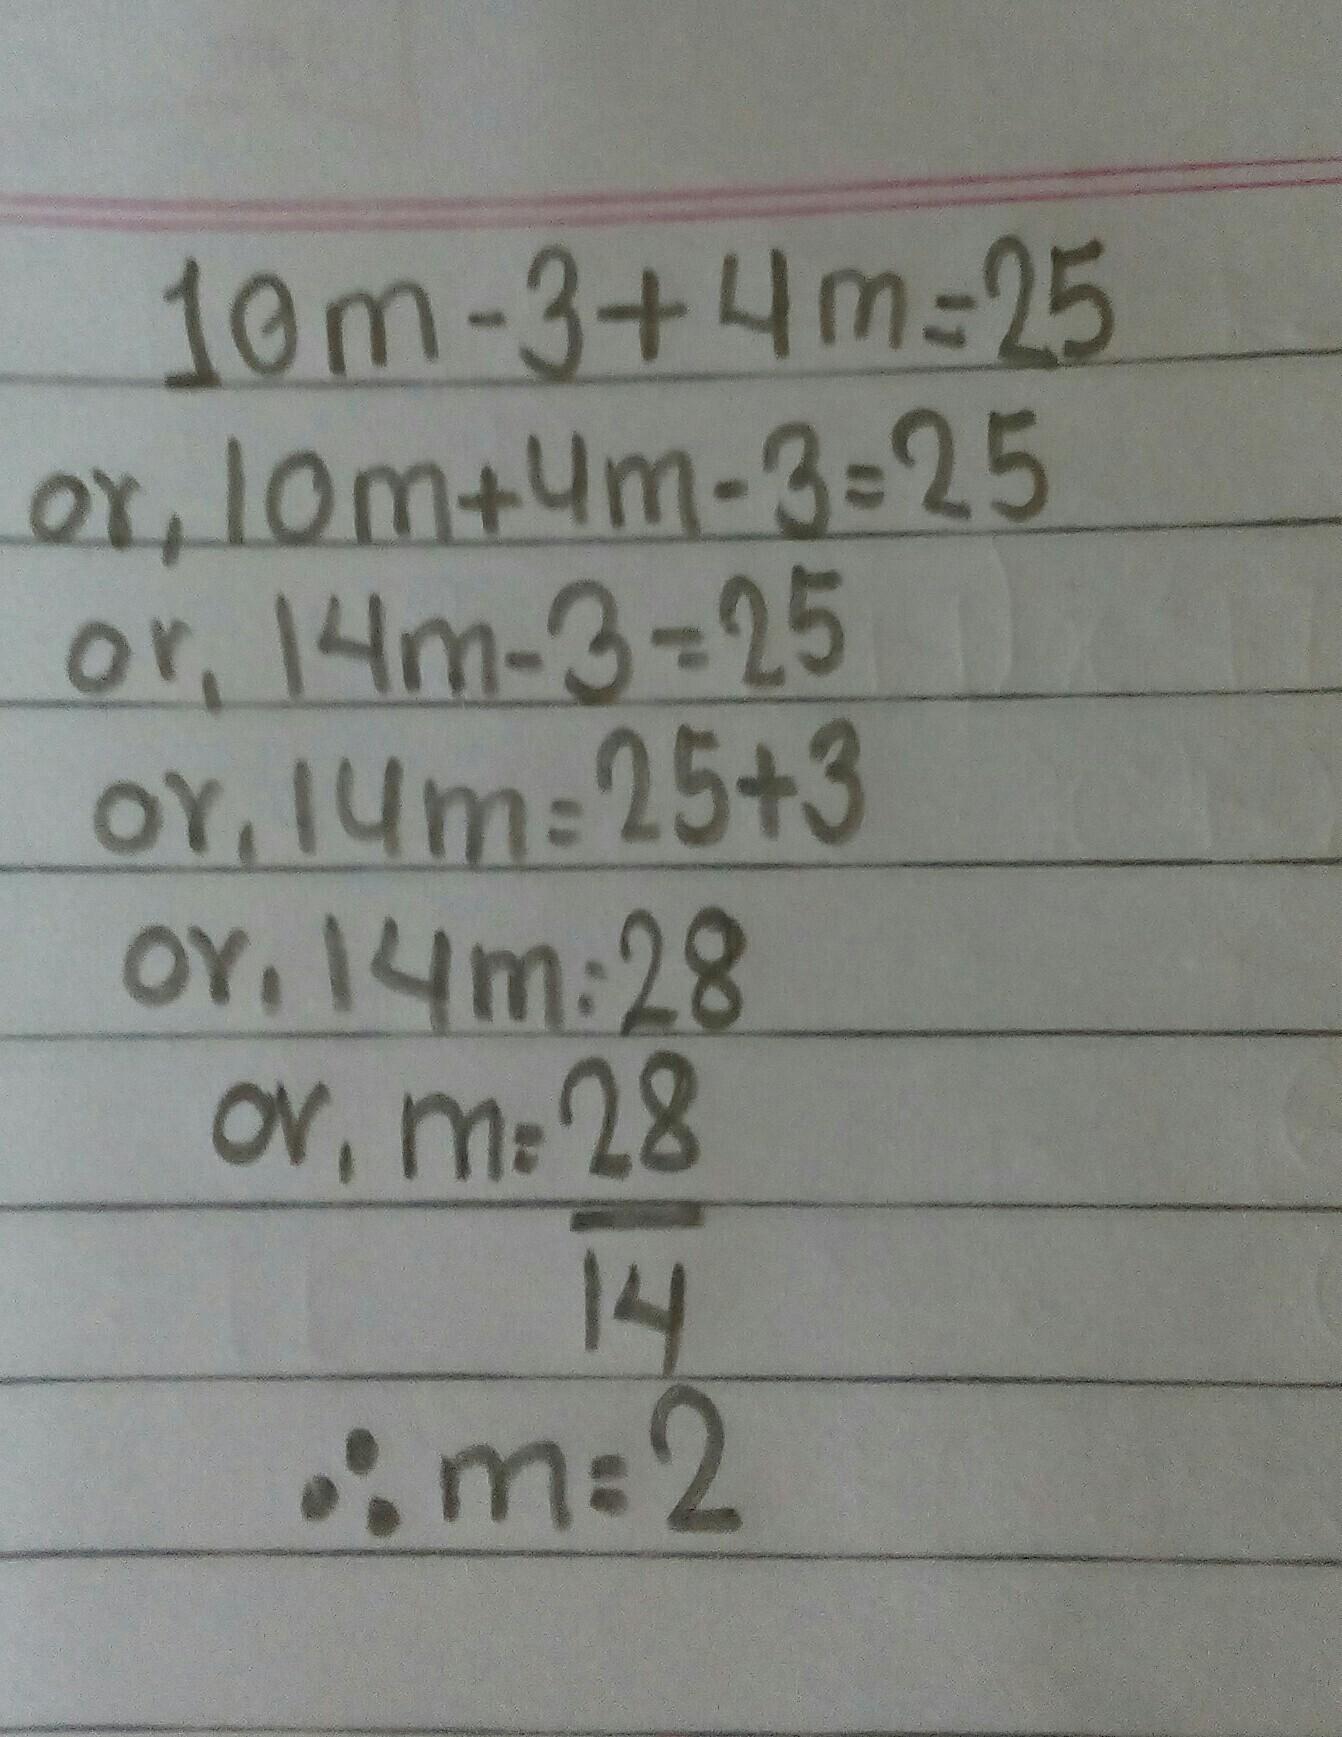 10m-3+4m=25
or, 10m+4m-3=25
or, 14m-3=25
or, 14m=25+3
or, 14m=28
or, m=28
14
∴ m=2